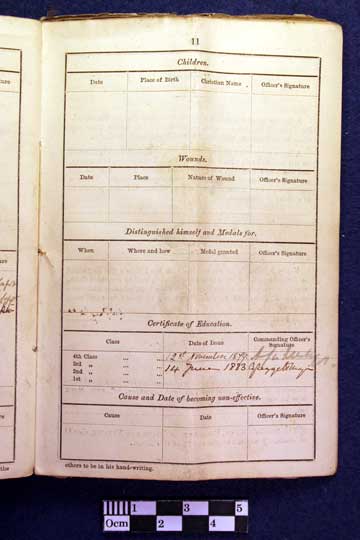 11
Children.
Date Place of Birth Christian Name Officer's Signature
Wounds.
Date Place Nature of Wound Officer's Signature
Distinguished himself and Medals for.
When Where and how Medal granted Officer's Signature
Certificate of Education.
Class Date of Issue Commanding Officer's Signature
4th Class ... ... 12th November
3rd „ ... ...
2nd „ ... ... 14 1893
1st „ ... ...
Cause and Date of becoming non-effective.
Cause Date Officer's Signature
others to be in his hand-writing.
1 3 5
0cm 2 4